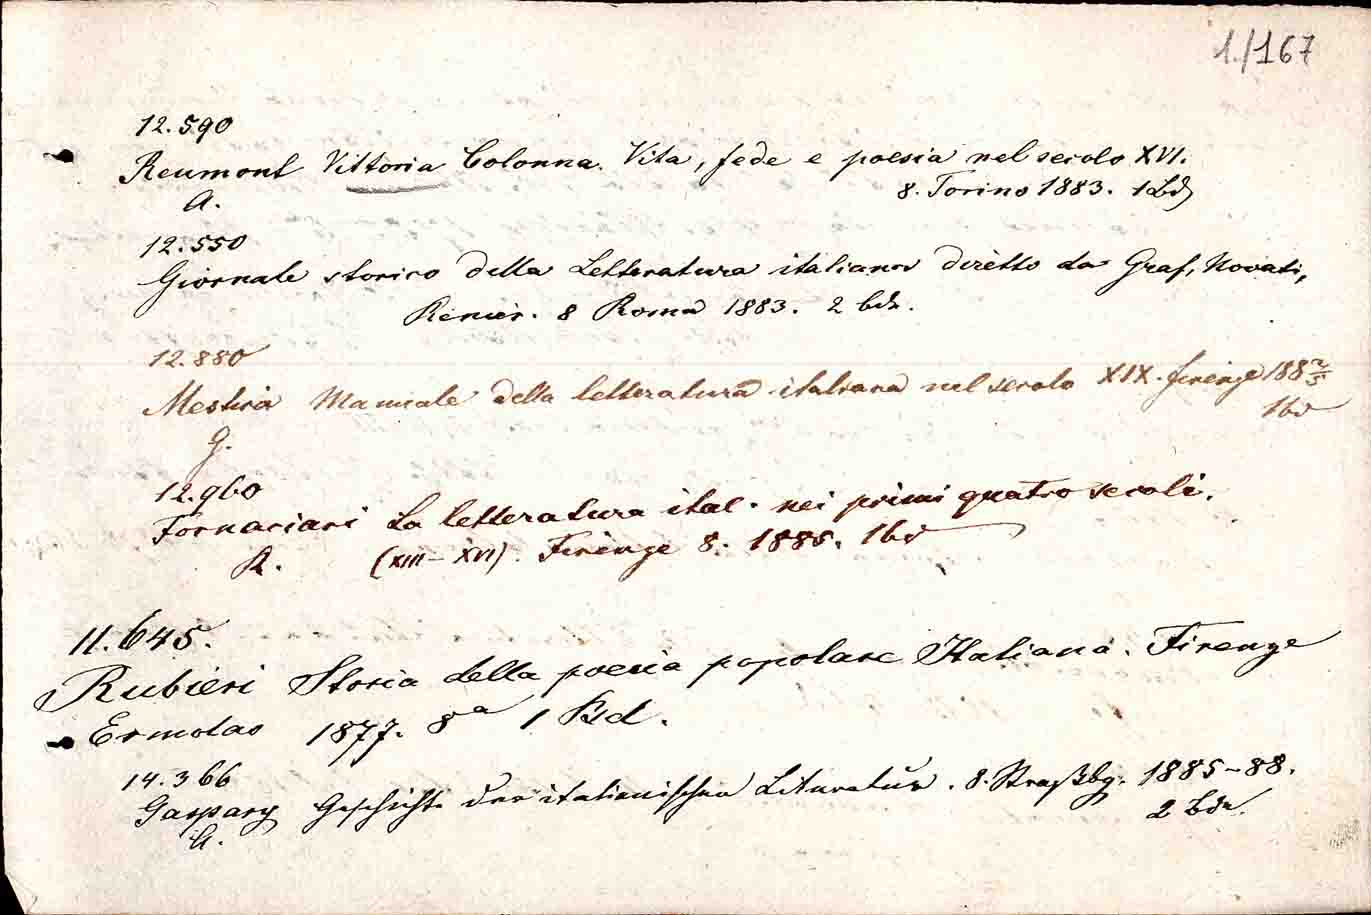 1./167
12.590
Reumont Vittoria Colonna. Vita, fede e poesia nel secolo XVI.
A. 8. Torino 1883. 1 Bd
12.550
Giornale storico della Letteratura italiana diretto da Graf, Novati,
Renier. 8 Roma 1883. 2 bde.
12.880
Mestica Manuale della letteratura italiana nel secolo XIX. firenze 1882/5
G. 1 bd
12.960
Fornaciari La letteratura ital. nei primi quatro secoli.
R. (XIII–XVI). Firenze 8. 1885. 1 bd
11.645.
Rubieri Storia della poesia popolare Italiana. Firenze
Ermolao 1877. 8ª 1 Bd.
14.366
Gaspary Geschichte der italienischen Literatur. 8. Straßbg. 1885–88.
A. 2 Bde.